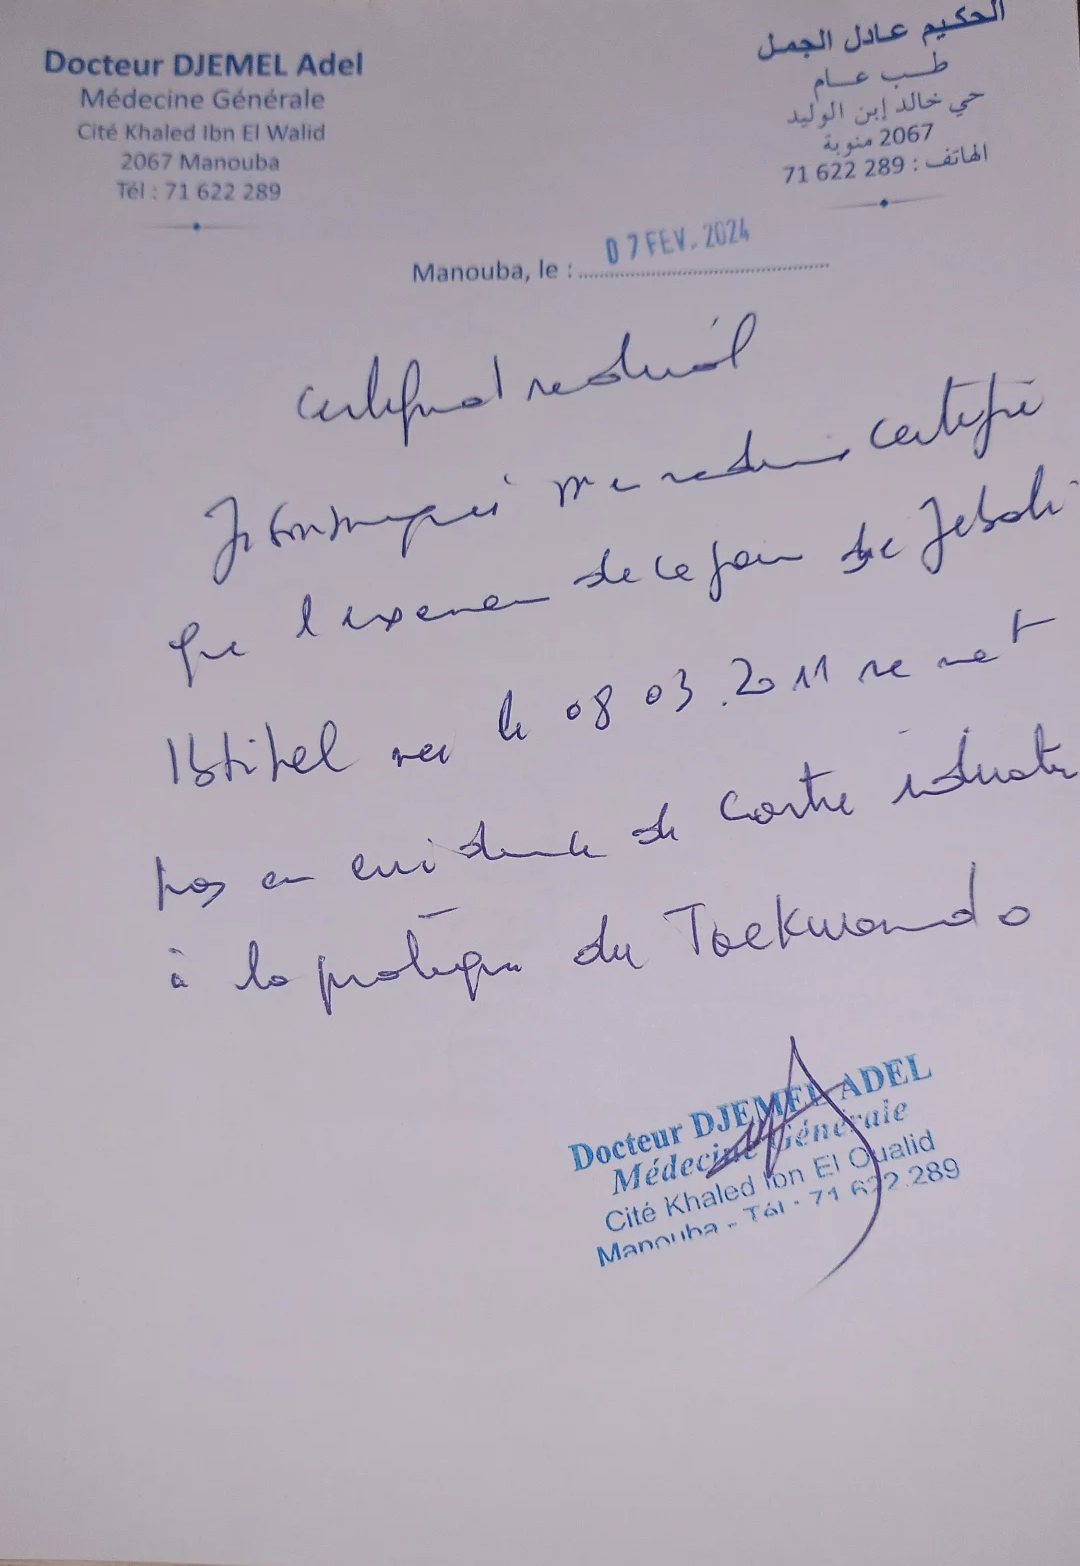 Docteur DJEMEL Adel
Médecine Générale
Cité Khaled Ibn El Walid
2067 Manouba
Tél : 71 622 289
الحكيم عادل الجمل
طب عام
حي خالد إبن الوليد
2067 منوبة
الهاتف : 289 622 71
Manouba, le : 07 FEV. 2024
certificat médical
Je soussigné médecin certifie
que l'examen de ce jour de Jebali
né le 08 03.2011 ne met
pas en évidence de contre indication
à la pratique du Taekwondo
Docteur DJEMEL ADEL
Médecine Générale
Cité Khaled Ibn El Oualid
Manouba - Tél : 71 622.289